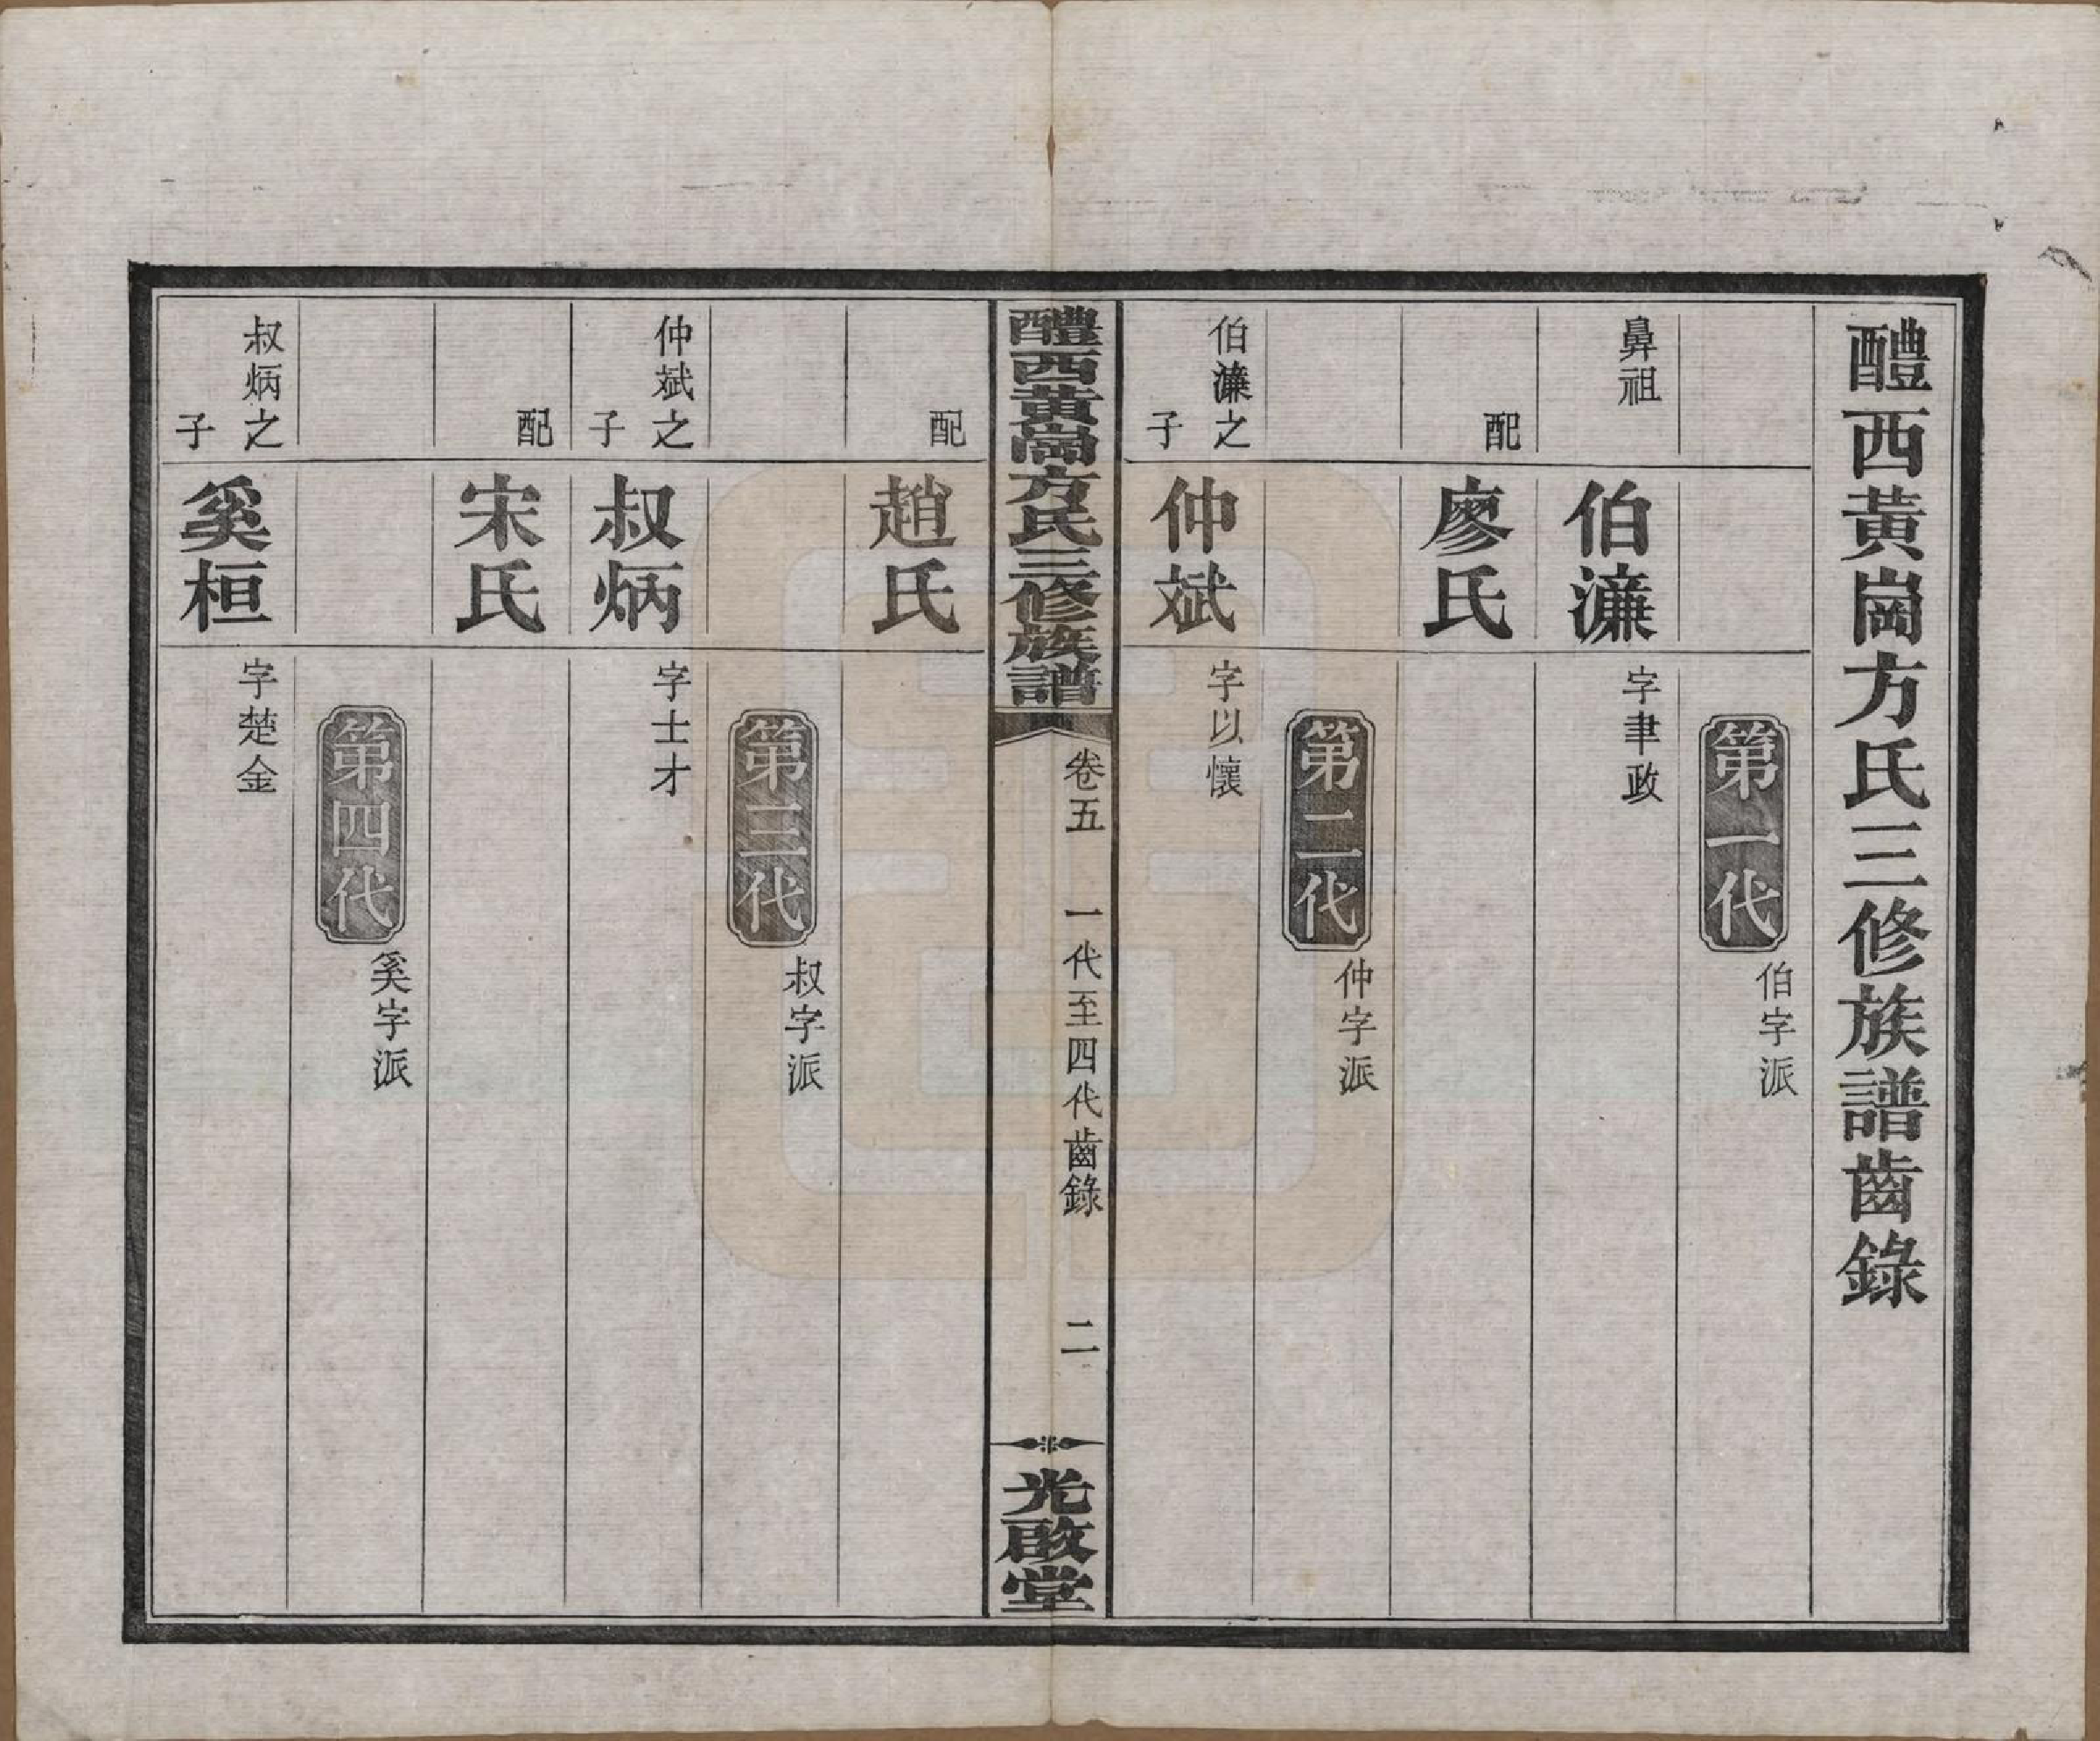 醴西黃崗方氏三修族譜齒錄
第一代
伯字派
鼻祖
伯濂
字聿政
配
廖氏
第二代
仲字派
伯濂之子
仲斌
字以懷
醴西黃崗方氏三修族譜
卷五
一代至四代齒錄
二
光啟堂
配
趙氏
第三代
叔字派
仲斌之子
叔炳
字士才
配
宋氏
第四代
奚字派
叔炳之子
奚桓
字楚金